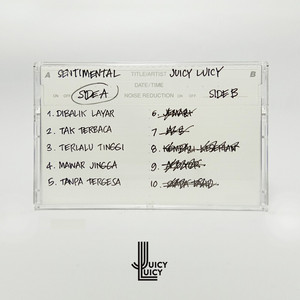 A SENTIMENTAL TITLE/ARTIST JUICY LUICY B
DATE/TIME
ON OFF SIDE A NOISE REDUCTION ON OFF SIDE B
1. DIBALIK LAYAR
2. TAK TERBACA
3. TERLALU TINGGI
4. MAWAR JINGGA
5. TANPA TERGESA
6.
7.
8.
9.
10.
JUICY
LUICY